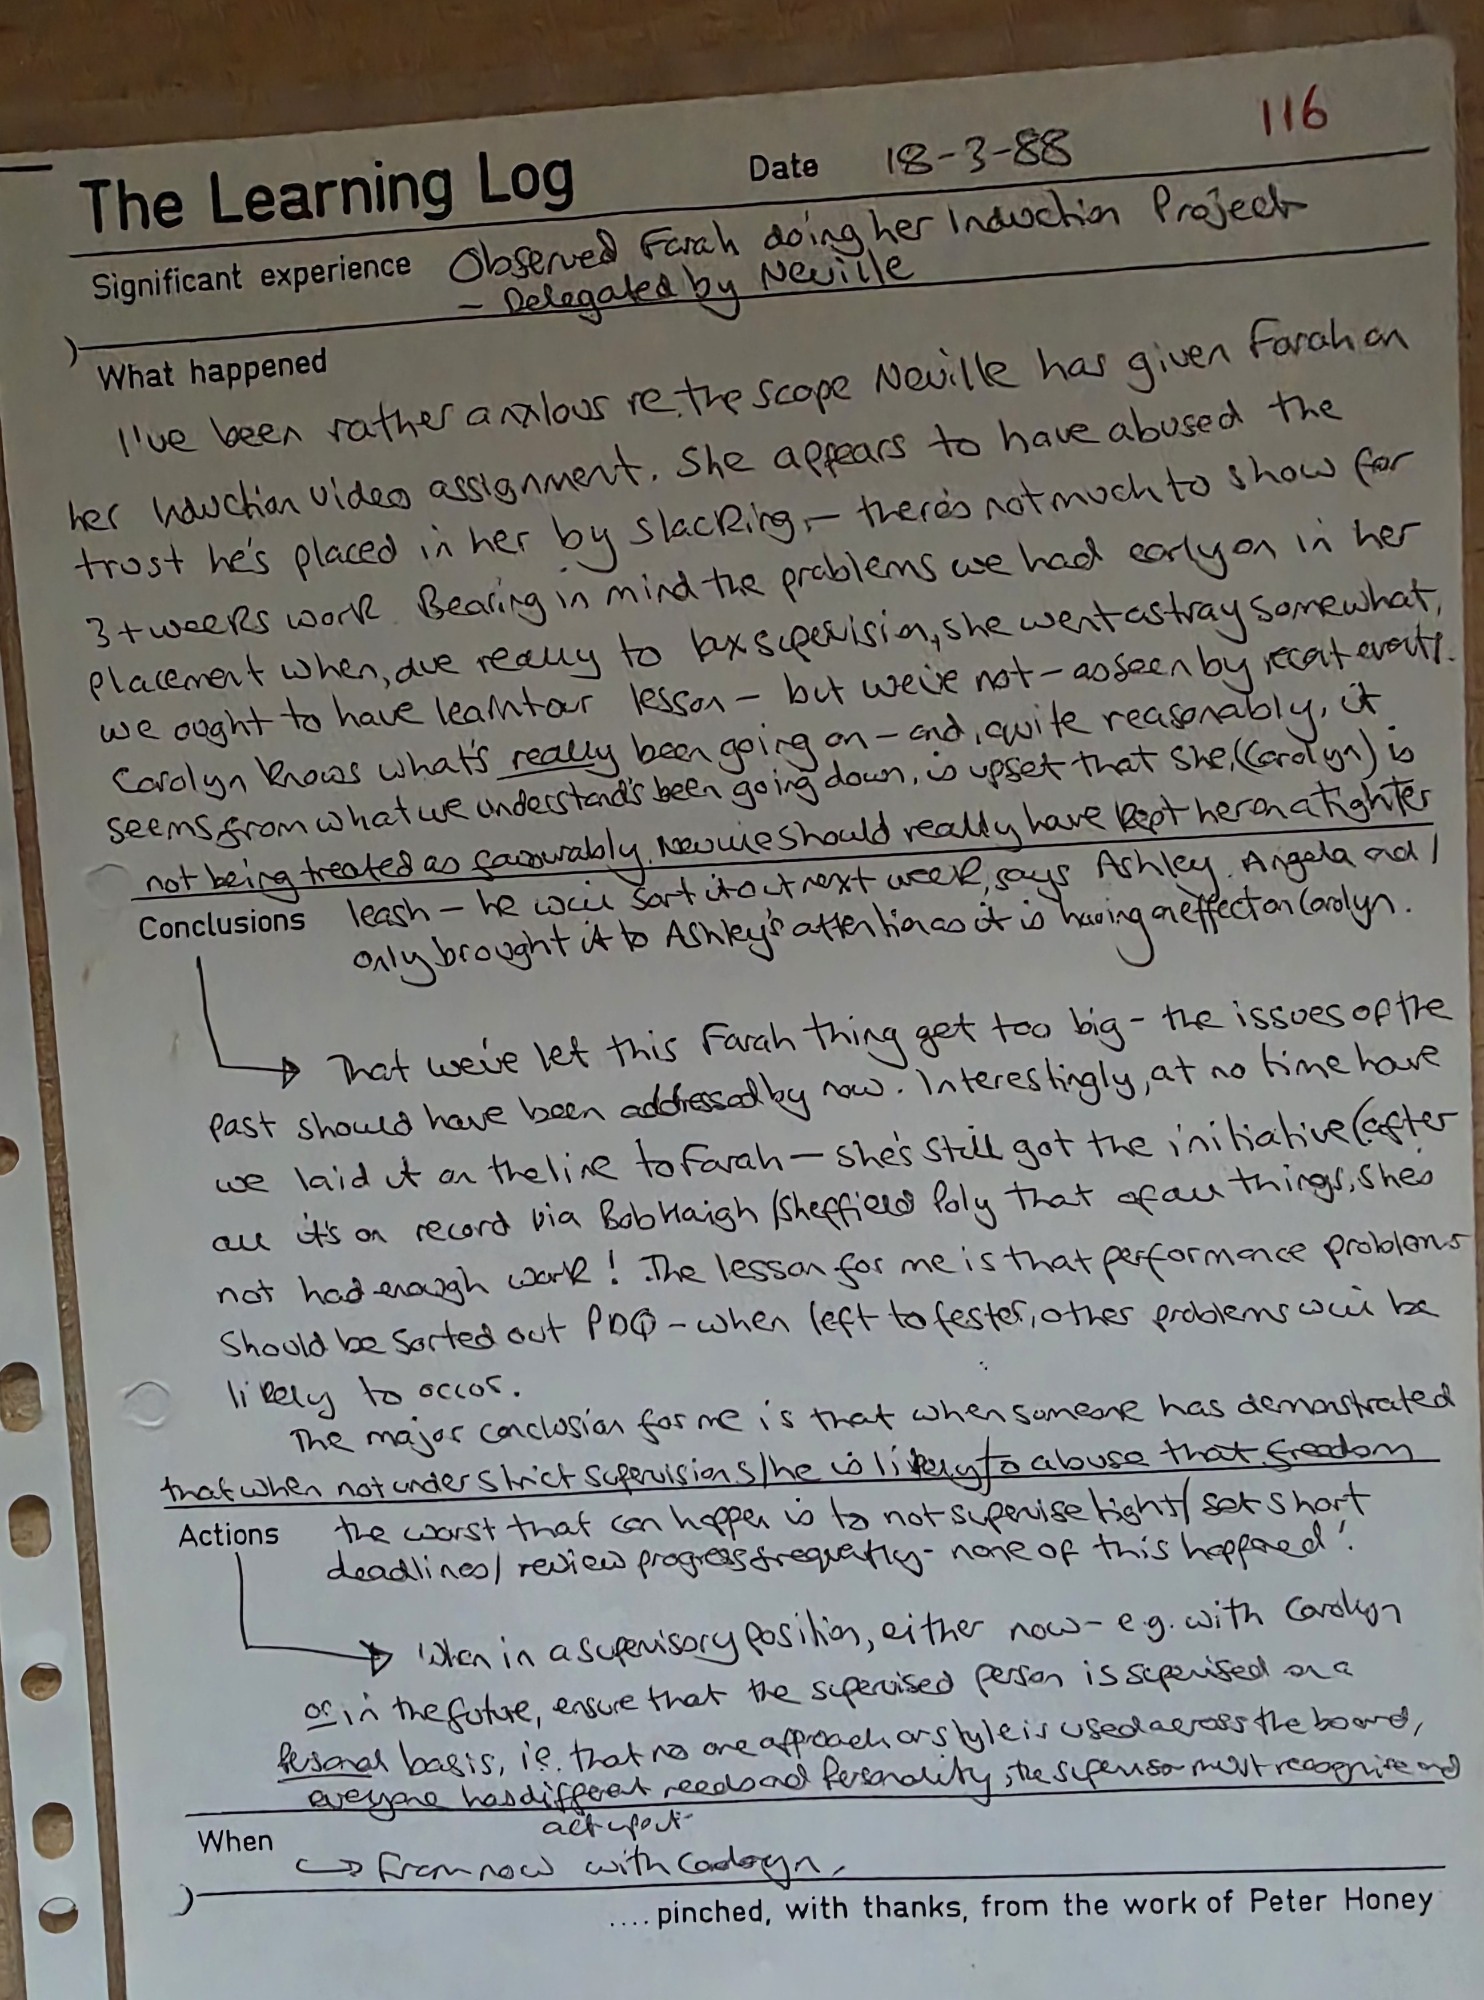 116
The Learning Log Date 18-3-88
Significant experience Observed Farah doing her Induction Project
- Delegated by Neville
What happened
I've been rather anxious re. the scope Neville has given Farah on
her Induction video assignment. She appears to have abused the
trust he's placed in her by slacking, - there's not much to show for
3+ weeks work. Bearing in mind the problems we had early on in her
placement when, due really to lax supervision, she went astray somewhat,
we ought to have learnt our lesson - but we've not - as seen by recent events.
Carolyn knows what's really been going on - and, quite reasonably, it
seems from what we understand's been going down, is upset that she, (Carolyn) is
not being treated as favourably. Neville should really have kept her on a tighter
Conclusions leash - he will sort it out next week, says Ashley. Angela and I
only brought it to Ashley's attention as it is having an effect on Carolyn.
That we've let this Farah thing get too big - the issues of the
past should have been addressed by now. Interestingly, at no time have
we laid it on the line to Farah - she's still got the initiative (after
all it's on record via Bob Haigh / Sheffield Poly that of all things, she's
not had enough work! The lesson for me is that performance problems
should be sorted out PDQ - when left to fester, other problems will be
likely to occur.
The major conclusion for me is that when someone has demonstrated
that when not under strict supervision s/he is likely to abuse that freedom
Actions the worst that can happen is to not supervise tight / set short
deadlines / review progress frequently - none of this happened!
When in a supervisory position, either now - e.g. with Carolyn
or in the future, ensure that the supervised person is supervised on a
personal basis, i.e. that no one approach or style is used across the board,
everyone has different needs and personality, the supervisor must recognise and
act upon it
When
From now with Carolyn.
.... pinched, with thanks, from the work of Peter Honey